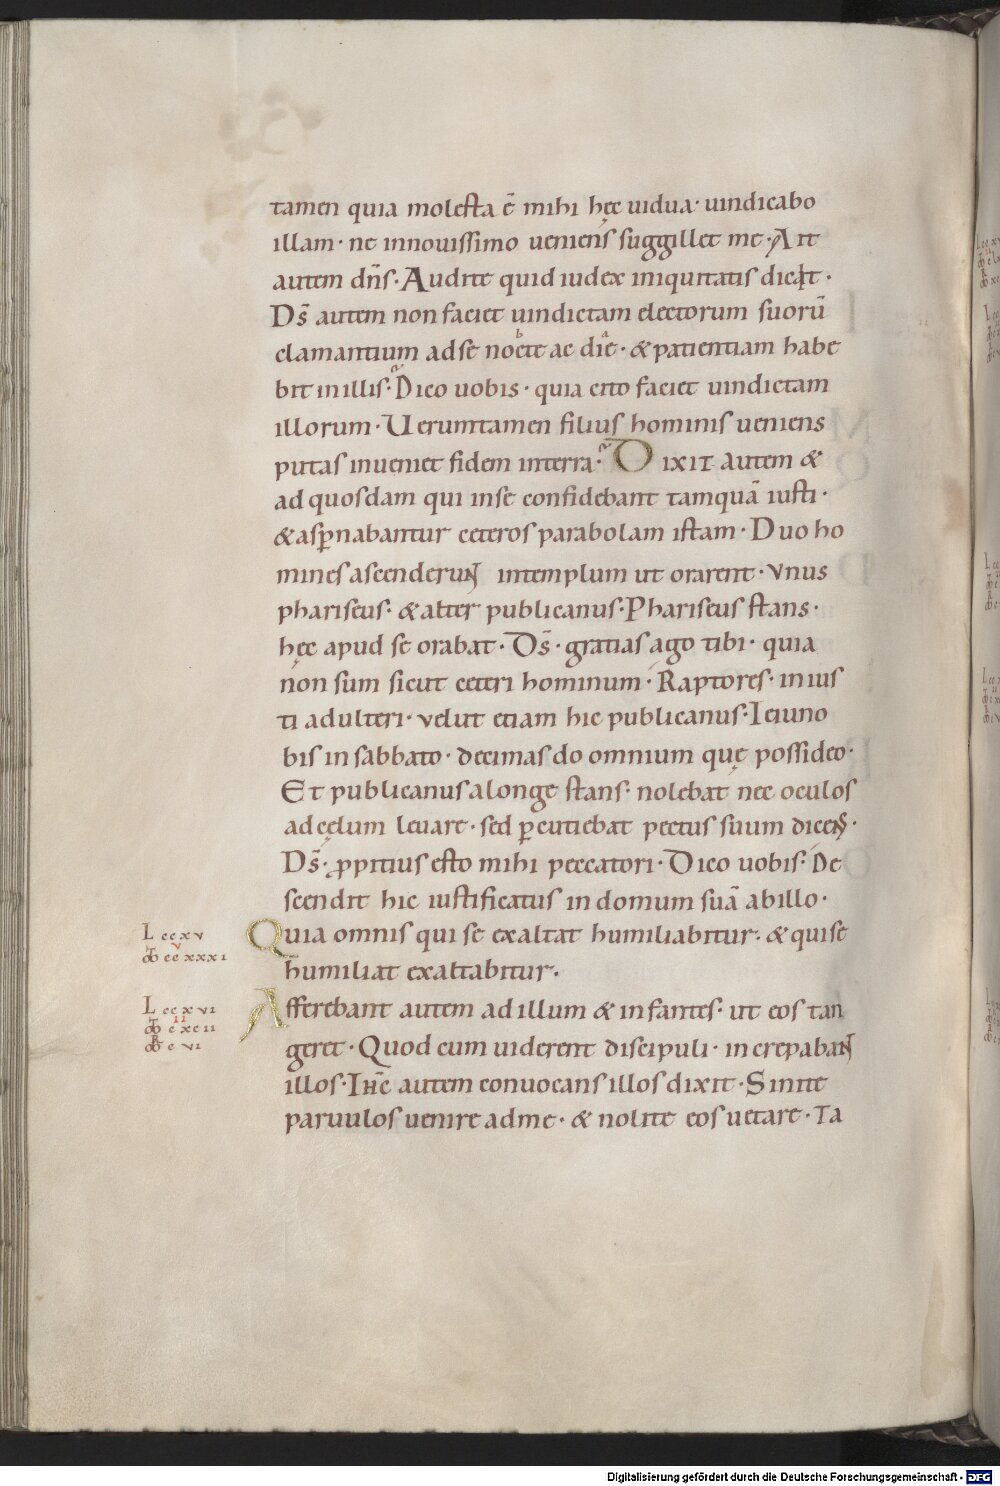 tamen quia molesta ē mihi hęc uidua· uindicabo
illam· ne innouissimo ueniens suggillet me· Ait
autem dn̄s· Audite quid iudex iniquitatis dicit·
Ds̄ autem non faciet uindictam electorum suorū
clamantium adse nocte ac die· & patientiam habe
bit inillis· Dico uobis· quia cito faciet uindictam
illorum· Ueruntamen filius hominis ueniens
putas inueniet fidem interra· Dixit autem &
ad quosdam qui inse confidebant tamquā iusti·
& aspnabantur ceteros parabolam istam· Duo ho
mines ascenderunt intemplum ut orarent· Vnus
phariseus· & alter publicanus· Phariseus stans·
hęc apud se orabat· Ds̄· gratias ago tibi· quia
non sum sicut ceteri hominum· Raptores· inius
ti adulteri· velut etiam hic publicanus· Ieiuno
bis in sabbato· decimas do omnium quę possideo·
Et publicanus alonge stans· nolebat nec oculos
ad cęlum leuare· sed ꝑcutiebat pectus suum dicens·
Ds̄· ꝓpitius esto mihi peccatori· Dico uobis· De
scendit hic iustificatus in domum suā abillo·
Quia omnis qui se exaltat humiliabitur· & qui se
humiliat exaltabitur·
Afferebant autem ad illum & infantes· ut eos tan
geret· Quod cum uiderent discipuli· increpabant
illos· Ihc̄ autem conuocans illos dixit· Sinite
paruulos uenire adme· & nolite eos uetare· Ta
L ccxv
v
ccxxxi
L ccxvi
ii
cxcii
cvi
Digitalisierung gefördert durch die Deutsche Forschungsgemeinschaft - DFG